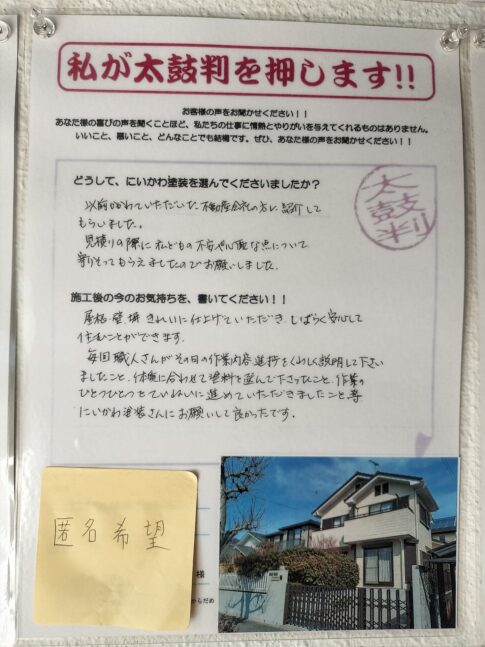 私が太鼓判を押します!!
お客様の声をお聞かせください！！
あなた様の喜びの声を聞くことほど、私たちの仕事に情熱とやりがいを与えてくれるものはありません。
いいこと、悪いこと、どんなことでも結構です。ぜひ、あなた様の声をお聞かせください！！
どうして、にいかわ塗装を選んでくださいましたか？
太鼓判
以前かかわっていただいた不動産会社の方に紹介して
もらいました。
見積りの際に私どもの不安や心配な点について
寄りそってもらえましたのでお願いしました。
施工後の今のお気持ちを、書いてください！！
屋根・壁・塀きれいに仕上げていただき、しばらく安心して
住むことができます。
毎回職人さんがその日の作業内容、進捗をくわしく説明して下さい
ましたこと、体感に合わせて塗料を選んで下さったこと、作業の
ひとつひとつをていねいに進めていただきましたこと、等
にいかわ塗装さんにお願いして良かったです。
匿名希望
様
からだめ